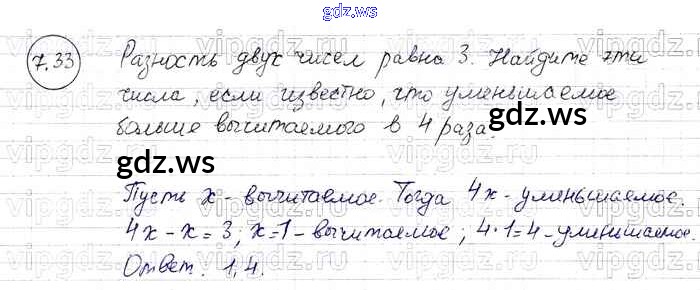 gdz.ws
7.33 Разность двух чисел равна 3. Найдите эти
числа, если известно, что уменьшаемое
больше вычитаемого в 4 раза.
gdz.ws gdz.ws
Пусть x - вычитаемое. Тогда 4x - уменьшаемое.
4x - x = 3; x = 1 - вычитаемое; 4·1=4 - уменьшаемое.
Ответ: 1,4.
gdz.ws gdz.ws